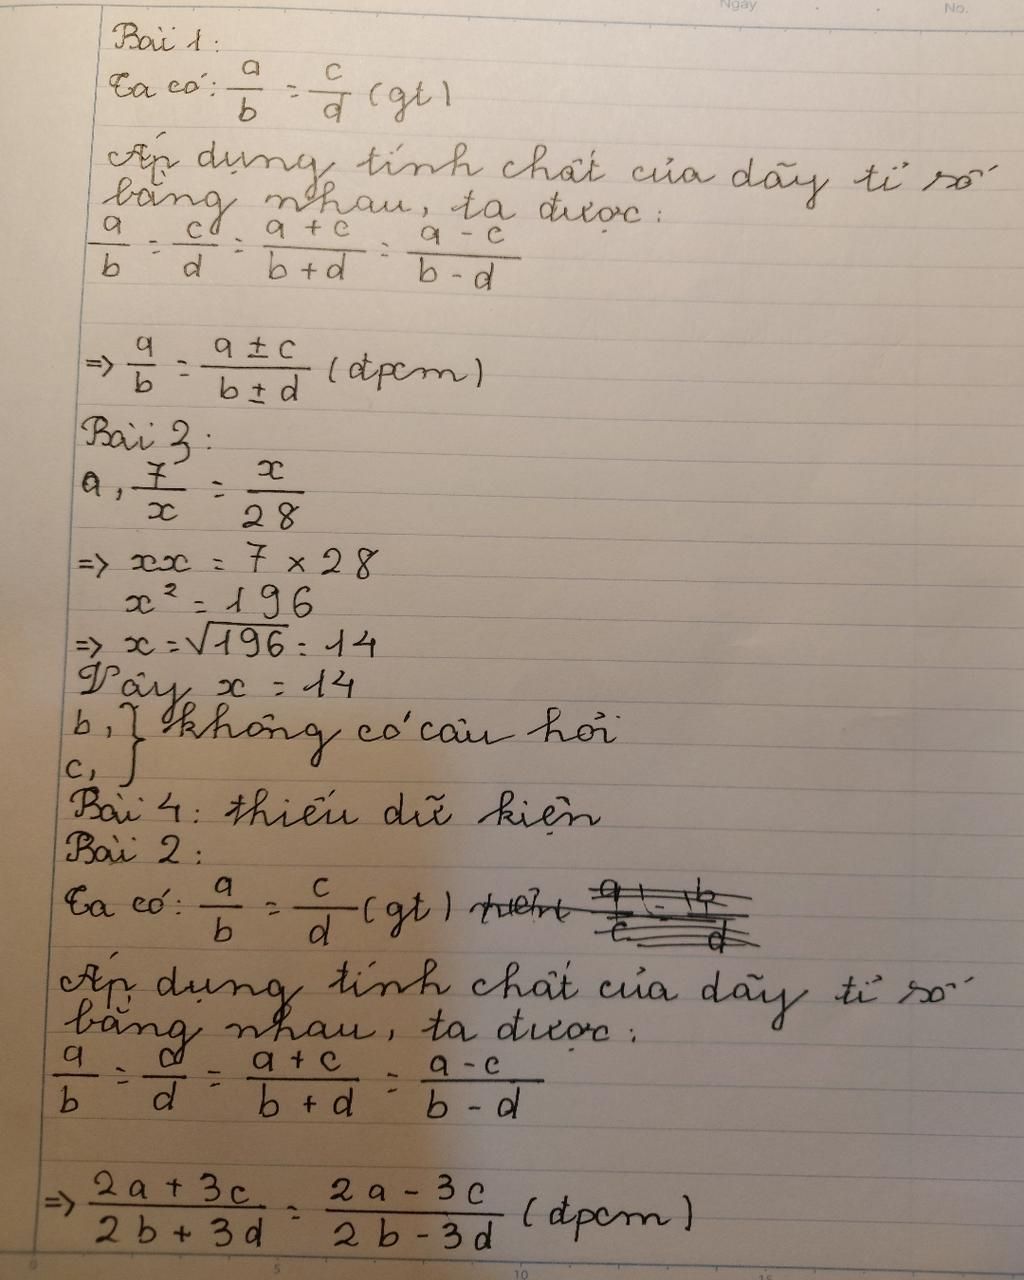 Ngày . . No.
Bài 1:
Ta có: a/b = c/d (gt)
Áp dụng tính chất của dãy tỉ số
bằng nhau, ta được:
a/b = c/d = (a + c)/(b + d) = (a - c)/(b - d)
=> a/b = (a ± c)/(b ± d) (đpcm)
Bài 3:
a, 7/x = x/28
=> xx = 7 × 28
x² = 196
=> x = √196 = 14
Vậy x = 14
b, } không có câu hỏi
c, }
Bài 4: thiếu dữ kiện
Bài 2:
Ta có: a/b = c/d (gt)
Áp dụng tính chất của dãy tỉ số
bằng nhau, ta được:
a/b = c/d = (a + c)/(b + d) = (a - c)/(b - d)
=> (2a + 3c)/(2b + 3d) = (2a - 3c)/(2b - 3d) (đpcm)
0 5 10 15